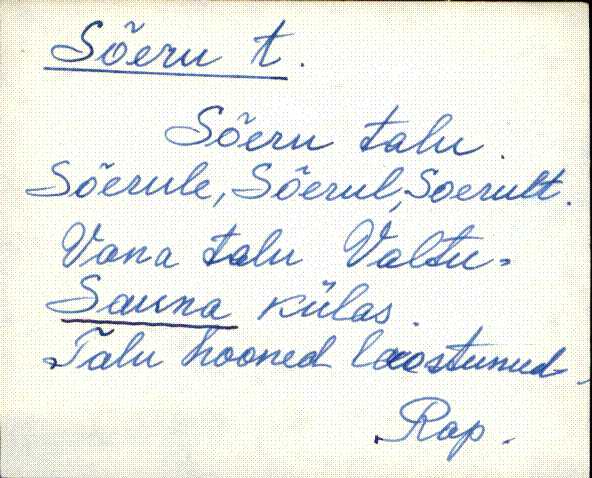 Sõeru t.
Sõeru talu.
Sõerule, Sõerul, Soerult.
Vana talu Valtu-
Sauna külas.
Talu hooned laostunud.
Rap.